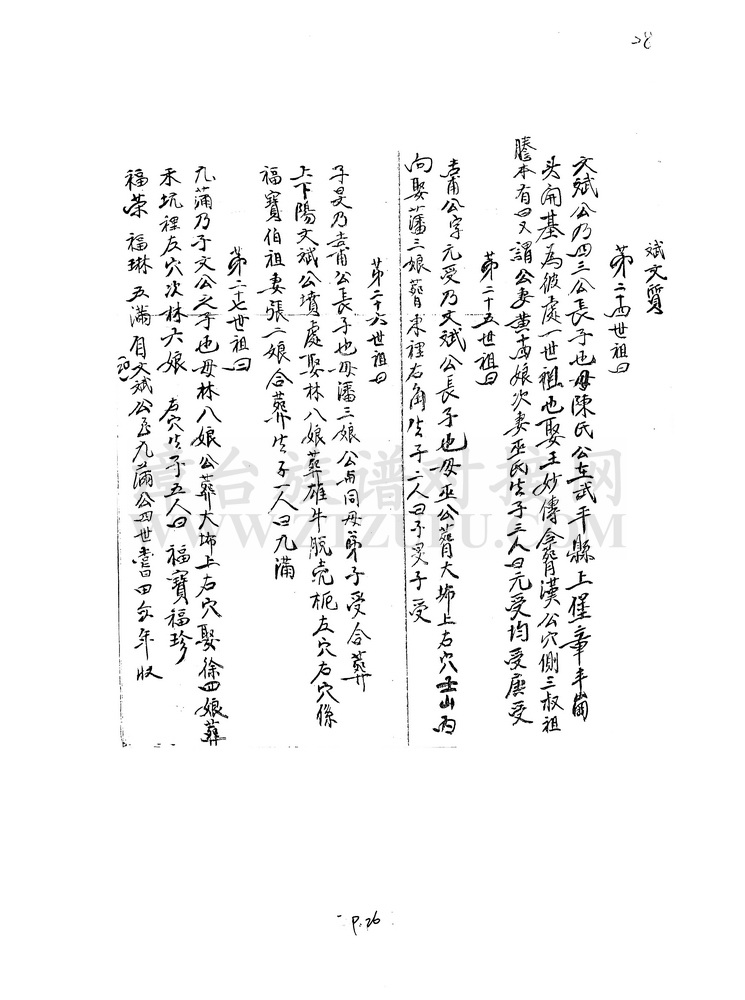 28
斌文質
第二十四世祖曰
文斌公乃四三公長子也母陳氏公在武平縣上堡章丰崗
头開基為彼處一世祖也娶王妙傳合葬漢公穴側三叔祖
謄本有曰又謂公妻黄十四娘次妻巫氏生子三人曰元受均受廣受
第二十五世祖曰
吉甫公字元受乃文斌公長子也母巫公葬大埔上右穴壬山丙
向娶藩三娘葬東裡右角生子二人曰子旻子受
第二十六世祖曰
子旻乃吉甫公長子也母潘三娘公與同母弟子受合葬
上下陽文斌公墳處娶林八娘葬雄牛脫壳柩左穴右穴係
福寶伯祖妻張二娘合葬生子一人曰九滿
第二十七世祖曰
九蒲乃子文公之子也母林八娘公葬大埔上右穴娶徐四娘葬
禾坑裡左穴次林六娘 右穴生子五人曰福寶福珍
福荣福琳五滿自文斌公至九滿公四世嘗田年收
章台族谱对接网
WWW.ZTZUPU.COM
P.26